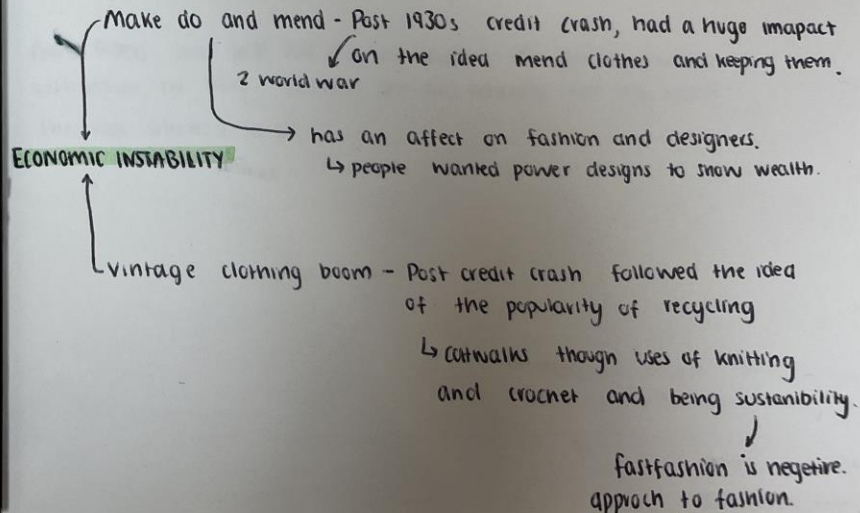 Make do and mend - Post 1930s credit crash, had a huge imapact
on the idea mend clothes and keeping them.
2 world war
has an affect on fashion and designers.
ECONOMIC INSTABILITY
↳ people wanted power designs to show wealth.
vintage clothing boom - Post credit crash followed the idea
of the popularity of recycling
↳ catwalks though uses of knitting
and crochet and being sustanibility.
fastfashion is negetive.
approch to fashion.